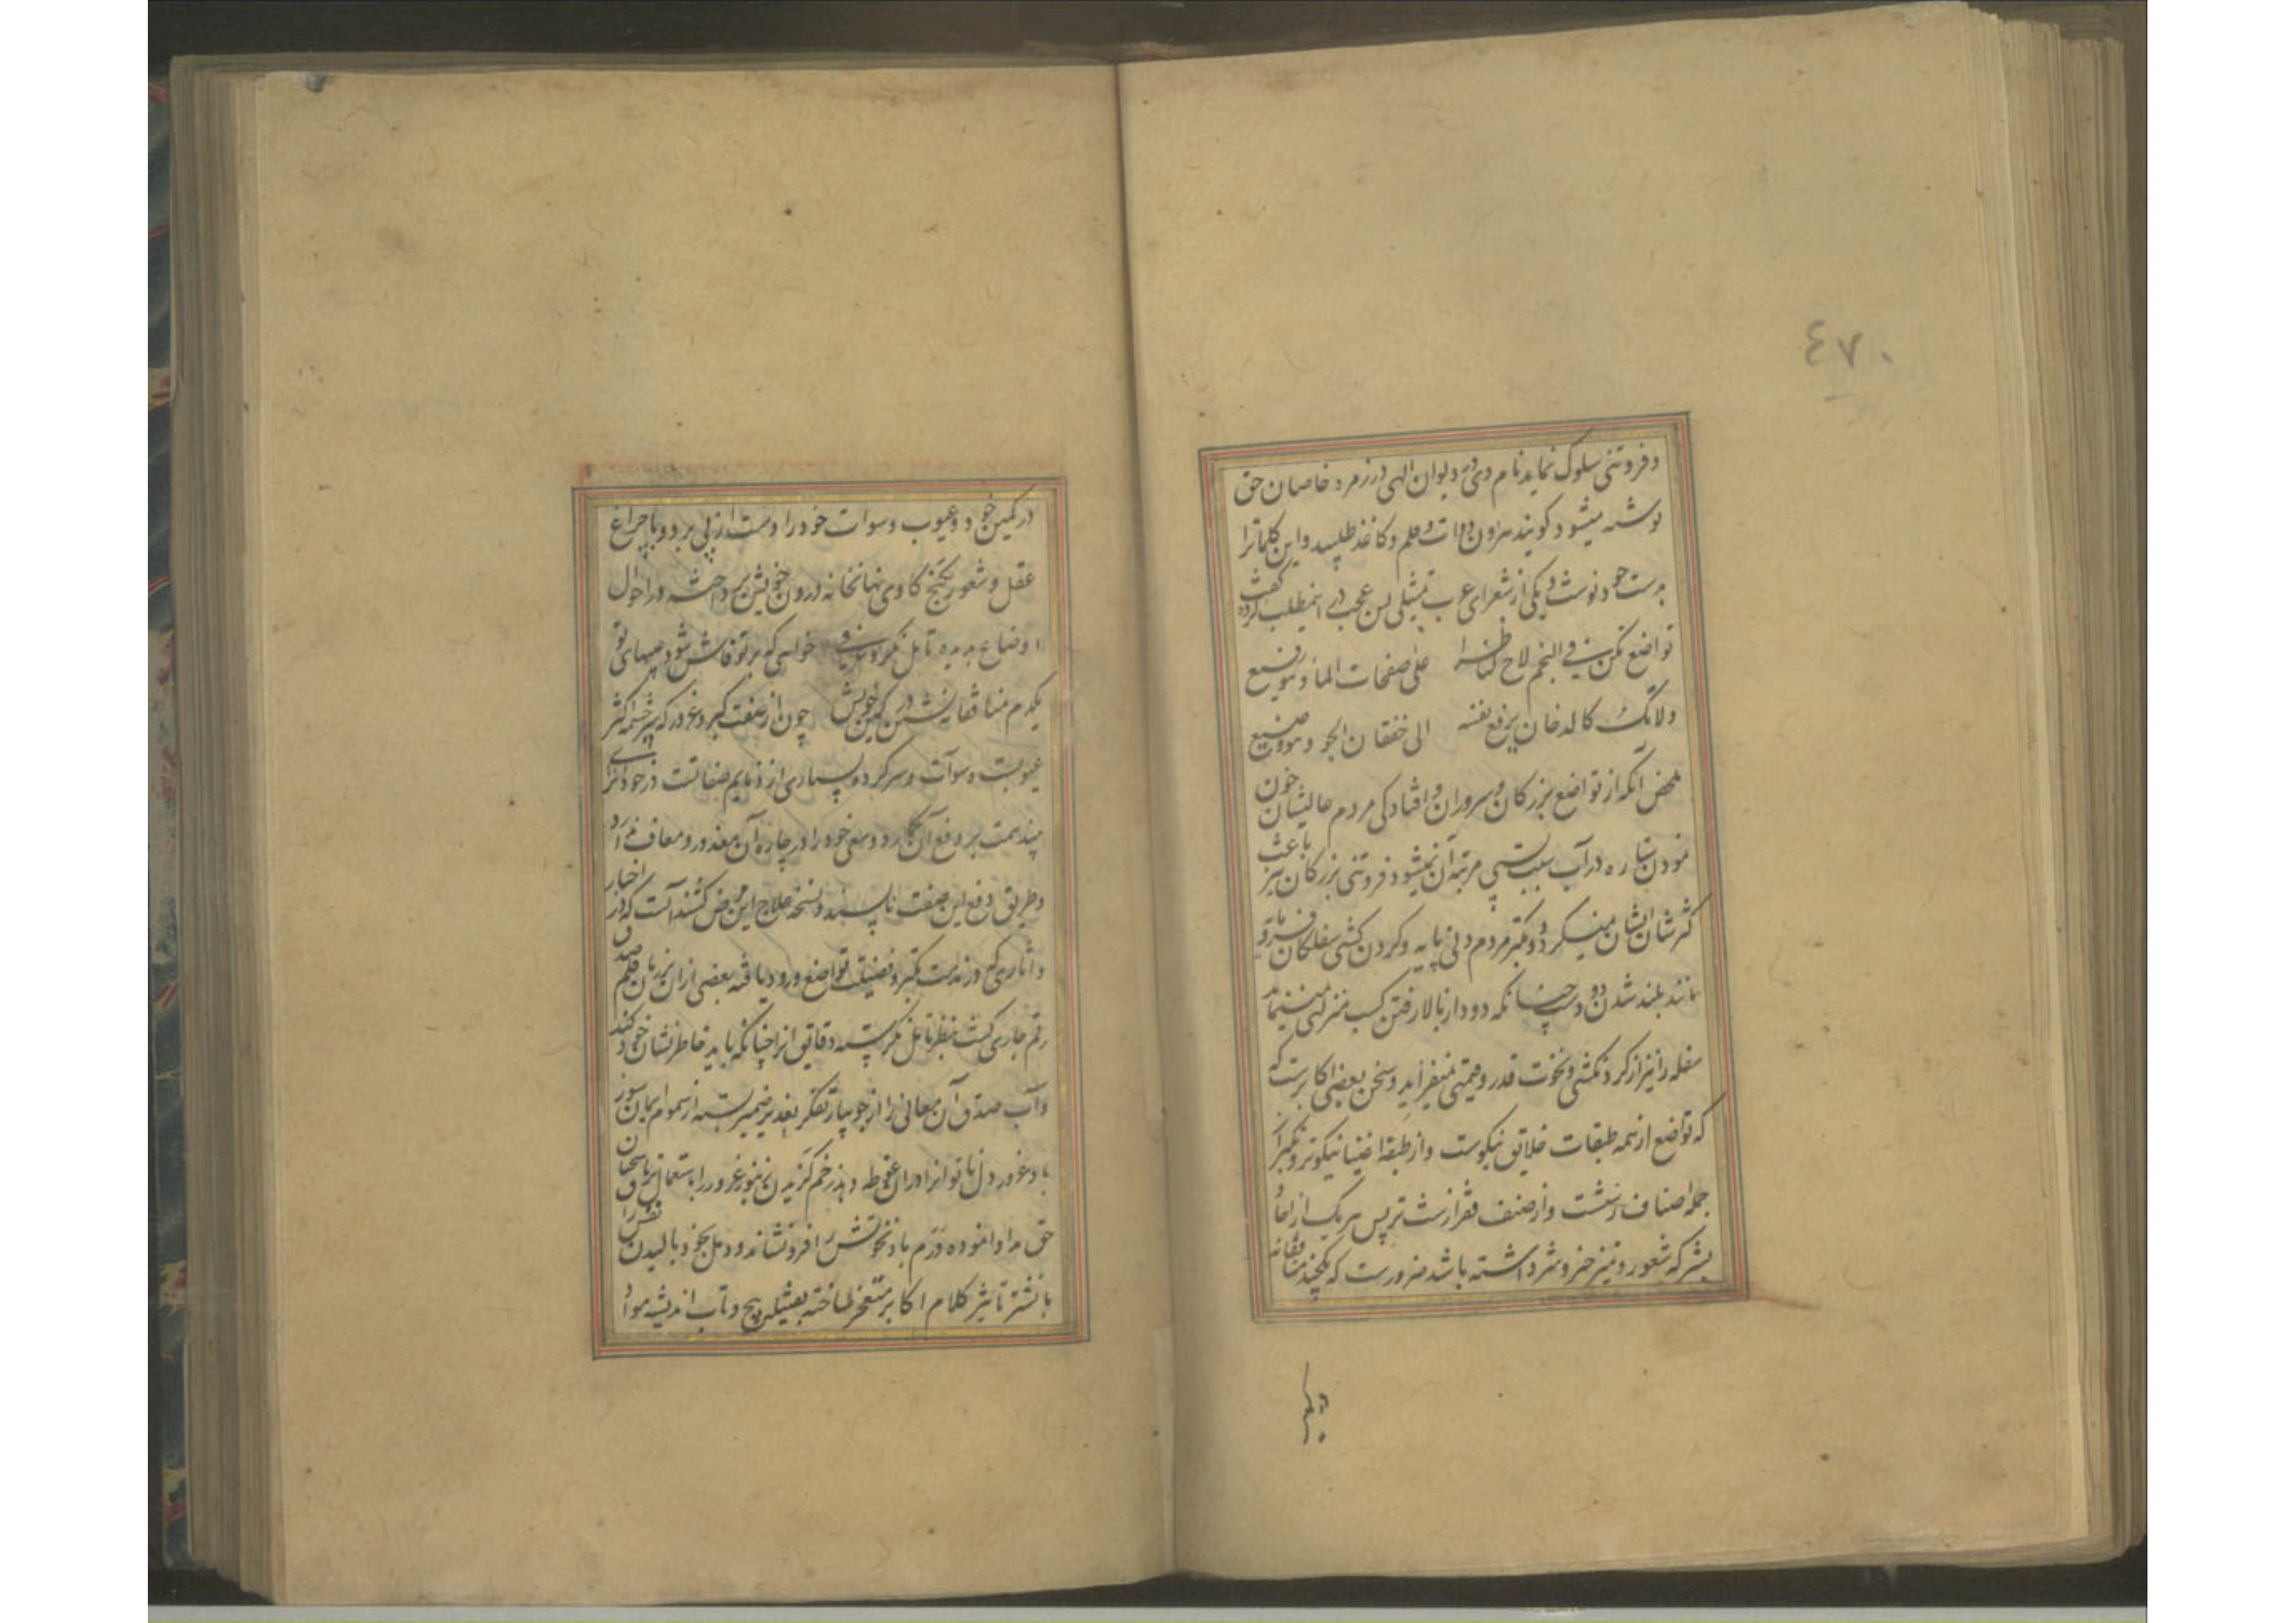 ٤٧٠
و فروتنی سلوک نماید نام وی در دیوان الهی در زمره خاصان حق
نوشته میشود گویند هرون دوات و قلم و کاغذ طلبید و این کلماترا
بدست خود نوشت و یکی از شعرای عرب تمثیلی بس عجب در اینمطلب گفته
تواضع تکن فی النجم لاح لناظر علی صفحات الماء و هو رفیع
ولا تک کالدخان یرفع نفسه الی الجو و هو وضیع
ملخص آنکه از تواضع بزرگان و سروران و افتادگی مردم عالیشان چون
نمودن ستاره در آب سبب پستی مرتبه آن نمیشود فروتنی بزرگان نیز باعث
کسر شان ایشان نمیگردد و تکبر مردم دنی پایه و گردن کشی سفلگان فرومایه
مانند بلند شدن دود چنانکه دود از بالا رفتن کسب منزلتی نمینماید
سفله را نیز از گردنکشی و نخوت قدر و قیمتی نمیفزاید و سخن بعضی اکابرست که
که تواضع از همه طبقات خلایق نیکوست و از طبقه اغنیا نیکوتر و تکبر از
جمله اصناف زشتست و از صنف فقرا زشت تر پس هر یک از
بشر که شعور و تمیز خیر و شر داشته باشد ضرورست که یکچند
در کمین خود و عیوب و سوات خود را دست از پی برد و با چراغ
عقل و شعور بکنج کاوی نهانخانه درون خویش پرداخته در احوال
اوضاع بدیده تامل نگرد خواهی که بر تو فاش شود عیبهای تو
یکدم منافقانه نشین در کمین خویش چون از صفت کبر و غرور که سرچشمه اکثر
عیوبست و سوآت و سرکرده بسیاری از ذمایم صفاتست در خود اثری
بیند همت بر دفع آن گمارد و سعی خود را در چاره آن معذور و معاف ندارد
و طریق دفع این صفت ناپسند و نسخه علاج این مرض کشنده آنست که در اخبار
و آثاری که در مذمت تکبر و فضیلت تواضع ورود یافته بعضی از آن بر زبان قلم صدق
رقم جاری گشت بنظر تامل نگریسته دقایق آنرا چنانکه باید خاطرنشان خود کند
و آب صدق آن معانی را از جویبار تفکر بغدیر ضمیر بسته از سموم ایمان سوز
باد غرور دل ناتوانرا دران غوطه دهد زخم گزیدن زنبور غرور را باستعمال تریاق سخنان
حق مداوا نموده ورم باد نخوتش را فرو نشاند و دمل عجز و بالیدن نفس را
با نشتر تاثیر کلام اکابر منفجر ساخته بفتیله پیچ و تاب اندیشه مواد